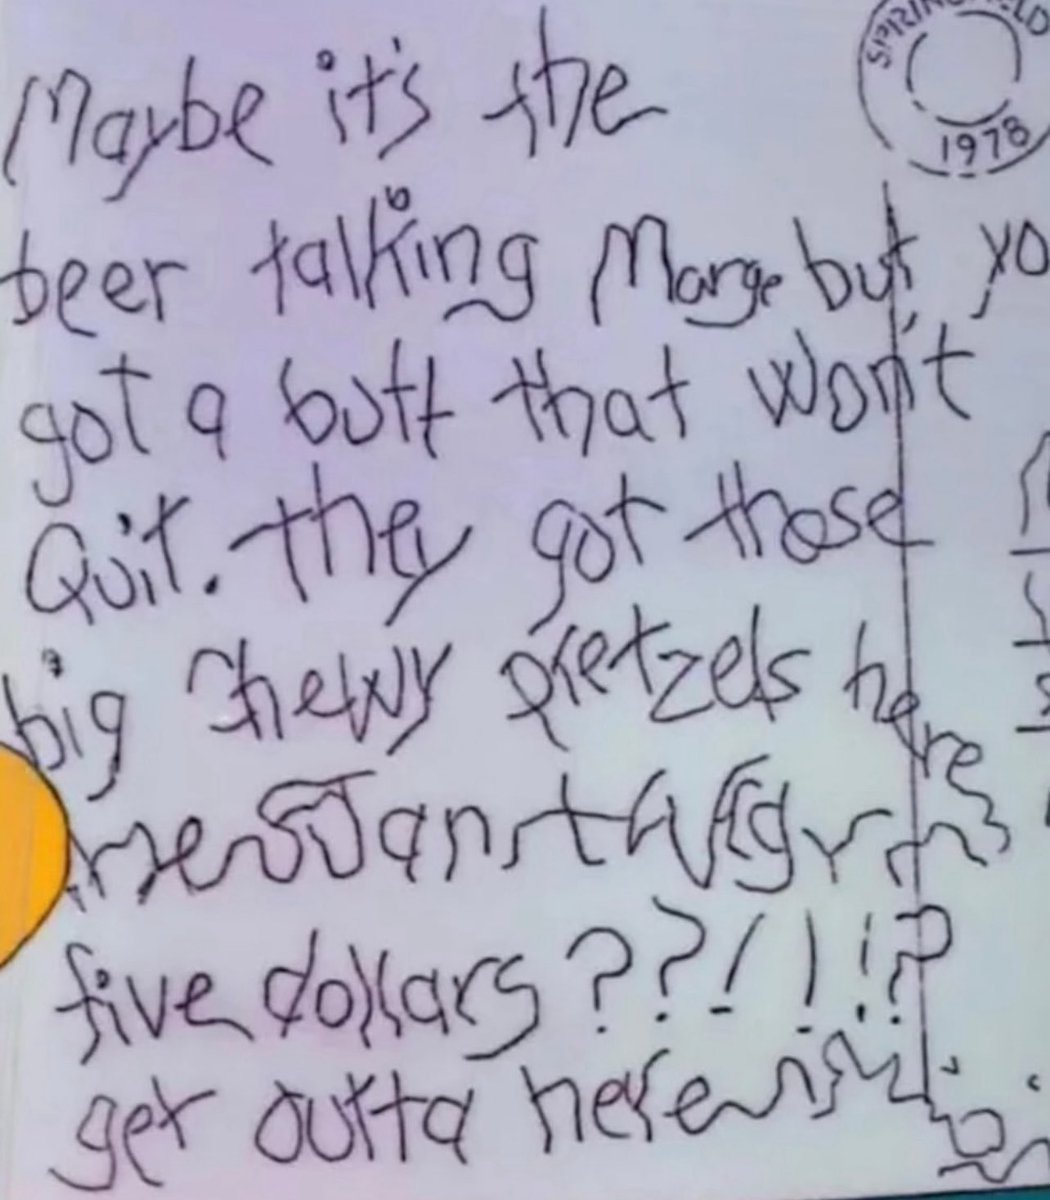 SPRINGFIELD
1978
Maybe it's the
beer talking Marge but yo
got a butt that won't
Quit. they got those
big chewy pretzels here
five dollars ??!!!?
get outta here